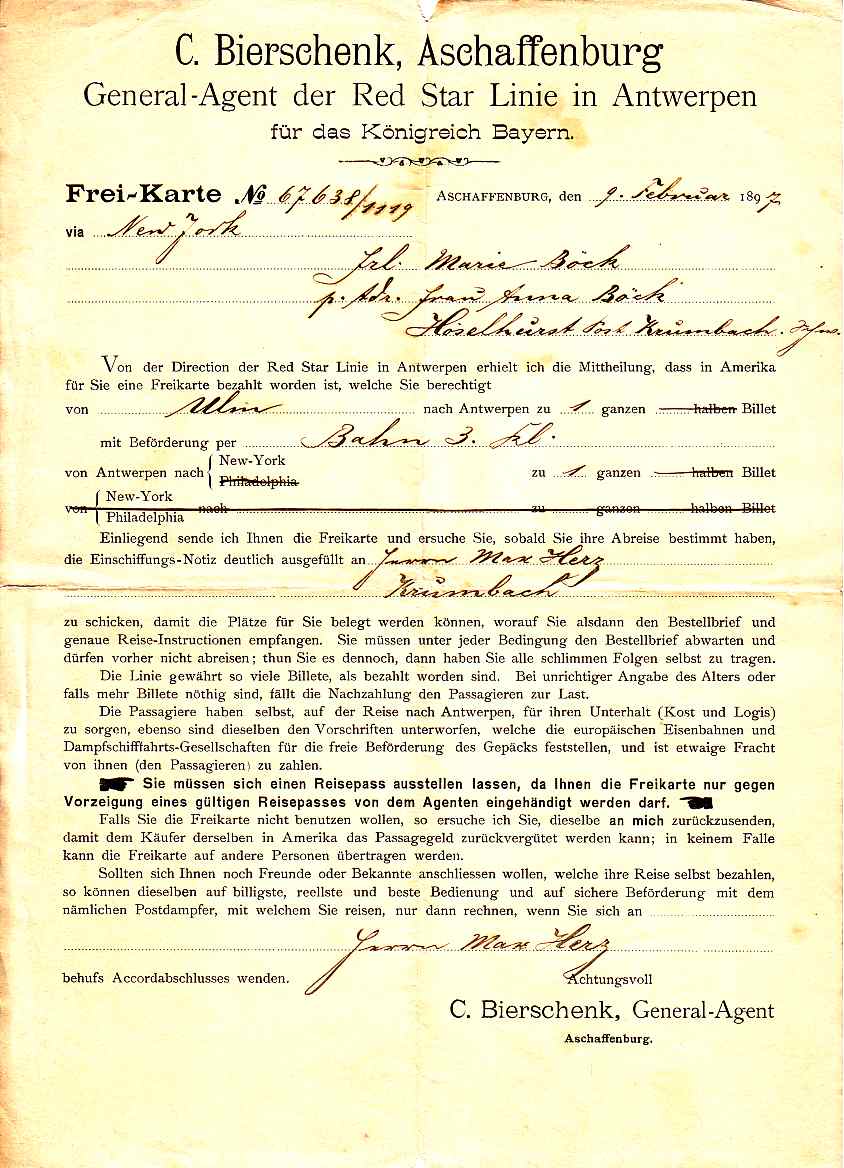 C. Bierschenk, Aschaffenburg
General-Agent der Red Star Linie in Antwerpen
für das Königreich Bayern.
Frei-Karte No 67638/1119 Aschaffenburg, den 9. Februar 1897
via New York
Frl. Marie Böck
p. Adr. Frau Anna Böck
Höselhurst Post Krumbach.
Von der Direction der Red Star Linie in Antwerpen erhielt ich die Mittheilung, dass in Amerika
für Sie eine Freikarte bezahlt worden ist, welche Sie berechtigt
von Ulm nach Antwerpen zu 1 ganzen halben Billet
mit Beförderung per Bahn 3. Kl.
von Antwerpen nach New-York zu 1 ganzen halben Billet
Philadelphia
New-York
von nach zu ganzen halben Billet
Philadelphia
Einliegend sende ich Ihnen die Freikarte und ersuche Sie, sobald Sie ihre Abreise bestimmt haben,
die Einschiffungs-Notiz deutlich ausgefüllt an Herrn Max Herz
Krumbach
zu schicken, damit die Plätze für Sie belegt werden können, worauf Sie alsdann den Bestellbrief und
genaue Reise-Instructionen empfangen. Sie müssen unter jeder Bedingung den Bestellbrief abwarten und
dürfen vorher nicht abreisen; thun Sie es dennoch, dann haben Sie alle schlimmen Folgen selbst zu tragen.
Die Linie gewährt so viele Billete, als bezahlt worden sind. Bei unrichtiger Angabe des Alters oder
falls mehr Billete nöthig sind, fällt die Nachzahlung den Passagieren zur Last.
Die Passagiere haben selbst, auf der Reise nach Antwerpen, für ihren Unterhalt (Kost und Logis)
zu sorgen, ebenso sind dieselben den Vorschriften unterworfen, welche die europäischen Eisenbahnen und
Dampfschifffahrts-Gesellschaften für die freie Beförderung des Gepäcks feststellen, und ist etwaige Fracht
von ihnen (den Passagieren) zu zahlen.
Sie müssen sich einen Reisepass ausstellen lassen, da Ihnen die Freikarte nur gegen
Vorzeigung eines gültigen Reisepasses von dem Agenten eingehändigt werden darf.
Falls Sie die Freikarte nicht benutzen wollen, so ersuche ich Sie, dieselbe an mich zurückzusenden,
damit dem Käufer derselben in Amerika das Passagegeld zurückvergütet werden kann; in keinem Falle
kann die Freikarte auf andere Personen übertragen werden.
Sollten sich Ihnen noch Freunde oder Bekannte anschliessen wollen, welche ihre Reise selbst bezahlen,
so können dieselben auf billigste, reellste und beste Bedienung und auf sichere Beförderung mit dem
nämlichen Postdampfer, mit welchem Sie reisen, nur dann rechnen, wenn Sie sich an
Herrn Max Herz
behufs Accordabschlusses wenden. Achtungsvoll
C. Bierschenk, General-Agent
Aschaffenburg.